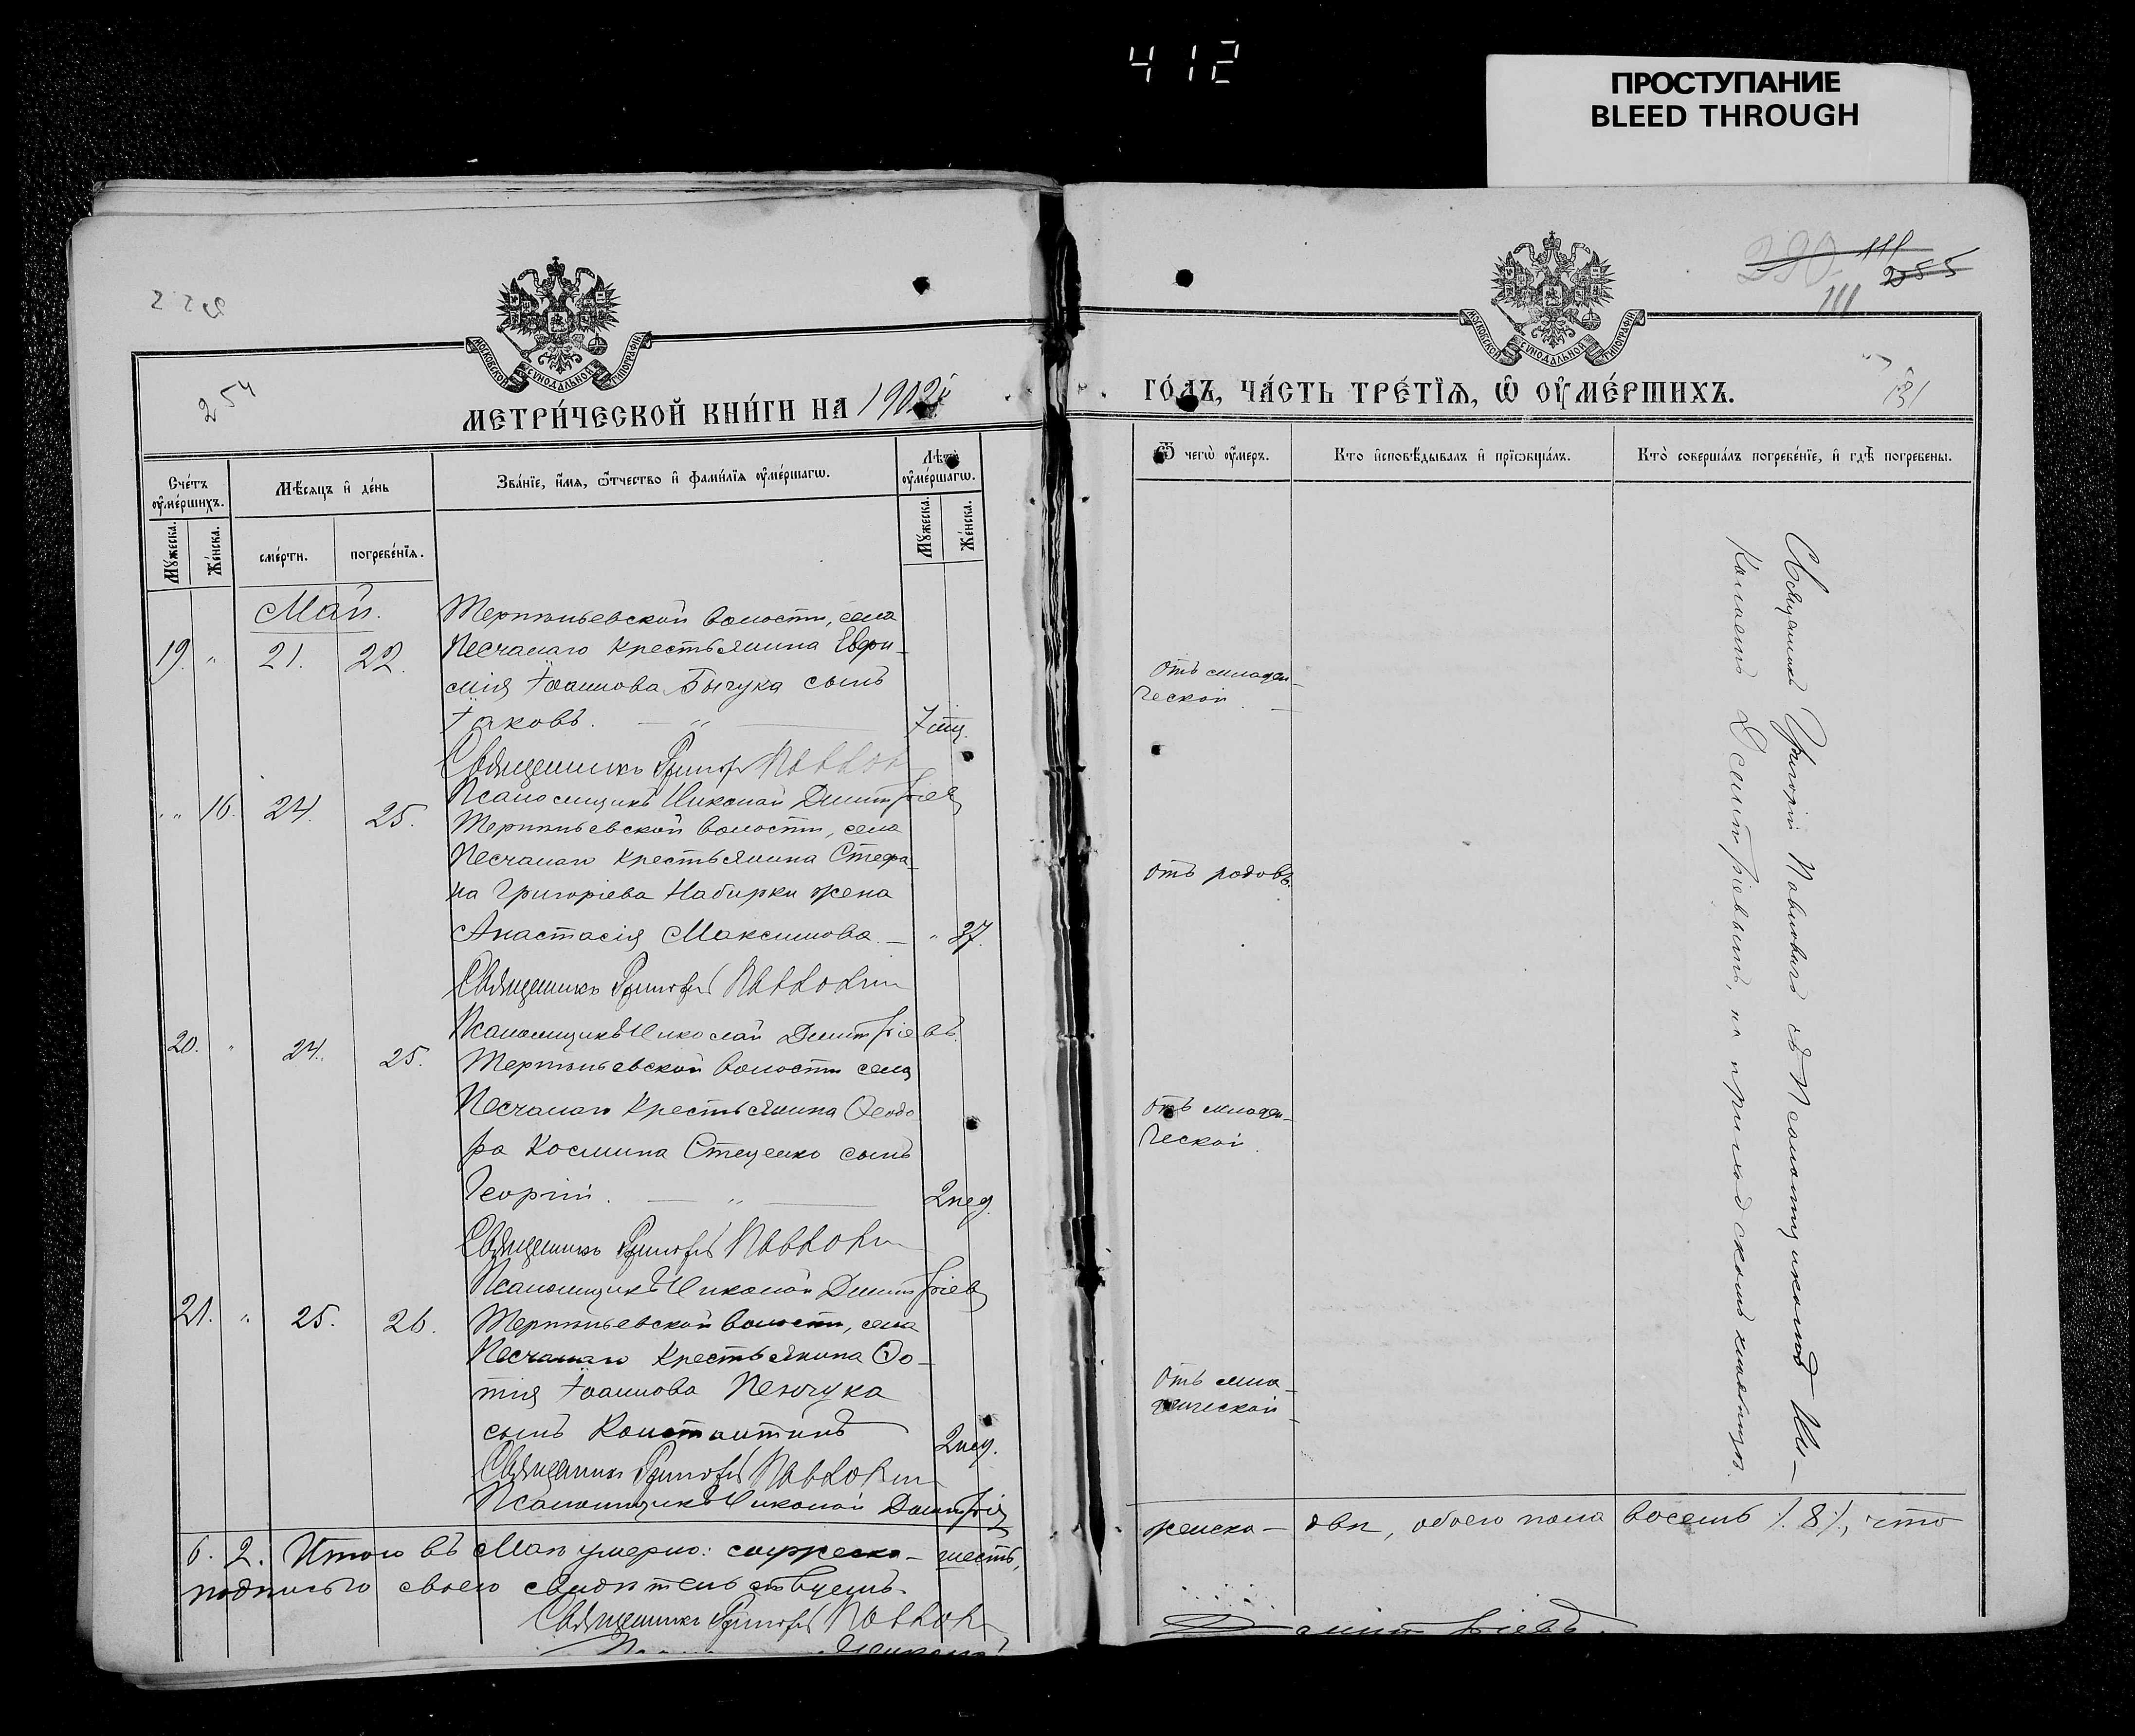 412
ПРОСТУПАНИЕ
BLEED THROUGH
МОСКОВСКОЙ СѴНОДАЛЬНОЙ ТИПОГРАФІИ
254
МЕТРИ́ЧЕСКОЙ КНИ́ГИ НА 1902й
Сче́тъ ᲂу҆ме́ршихъ.
Мѣ́сяцъ и҆ де́нь
Зва́нїе, и҆́мя, ѻ҆́тчество и҆ фами́лїя ᲂу҆ме́ршагѡ.
Лѣ́та ᲂу҆ме́ршагѡ.
Мꙋ́жеска. Же́нска.
сме́рти. погребе́нїя.
Мꙋ́жеска. Же́нска.
Май.
Терпѣньевской волости, села
19. " 21. 22. Песчанаго крестьянина Евфи-
мія Іоаннова Бычука сынъ
Іаковъ. — " — 7 мц.
Священникъ Григорій Павлов
Псаломщикъ Николай Димитріев
" 16. 24. 25. Терпѣньевской волости, села
Песчанаго крестьянина Стефа-
на Григоріева Набирки жена
Анастасія Максимова. — " 27.
Священникъ Григорій Павлович
Псаломщикъ Николай Димитріевъ.
20. " 24. 25. Терпѣньевской волости села
Песчанаго крестьянина Ѳеодо
ра Космина Стеценко сынъ
Георгій. — " — 2 нед.
Священникъ Григорій Павлович
Псаломщикъ Николай Димитріев
21. " 25. 26. Терпѣньевской волости, села
Песчанаго крестьянина Фо-
тія Іоаннова Пенчука
сынъ Константинъ 2 нед.
Священникъ Григорій Павлович
Псаломщикъ Николай Димитрі
6. 2. Итого въ Маѣ умерло: мужеска — шесть,
подписью своею свидѣтельствуемъ.
Священникъ Григорій Павлов
111
255
111
МОСКОВСКОЙ СѴНОДАЛЬНОЙ ТИПОГРАФІИ
ГО́ДЪ, ЧА́СТЬ ТРЕ́ТЇѦ, Ѡ҆ ОУ҆МЕ́РШИХЪ.
131
Ѿ чегѡ̀ ᲂу҆́меръ.
Кто̀ и҆сповѣ́дывалъ и҆ прїѡбща́лъ.
Кто̀ соверша́лъ погребе́нїе, и҆ гдѣ̀ погребены.
Отъ младен-
ческой.
отъ родовъ.
Отъ младен-
ческой.
Отъ мла-
денческой
Священникъ Григорій Павловичъ съ Псаломщикомъ Ни-
колаемъ Димитріевымъ, на приходскомъ кладбищѣ.
женска — двѣ, обоего пола восемь /. 8 /., что
Димитріевъ.